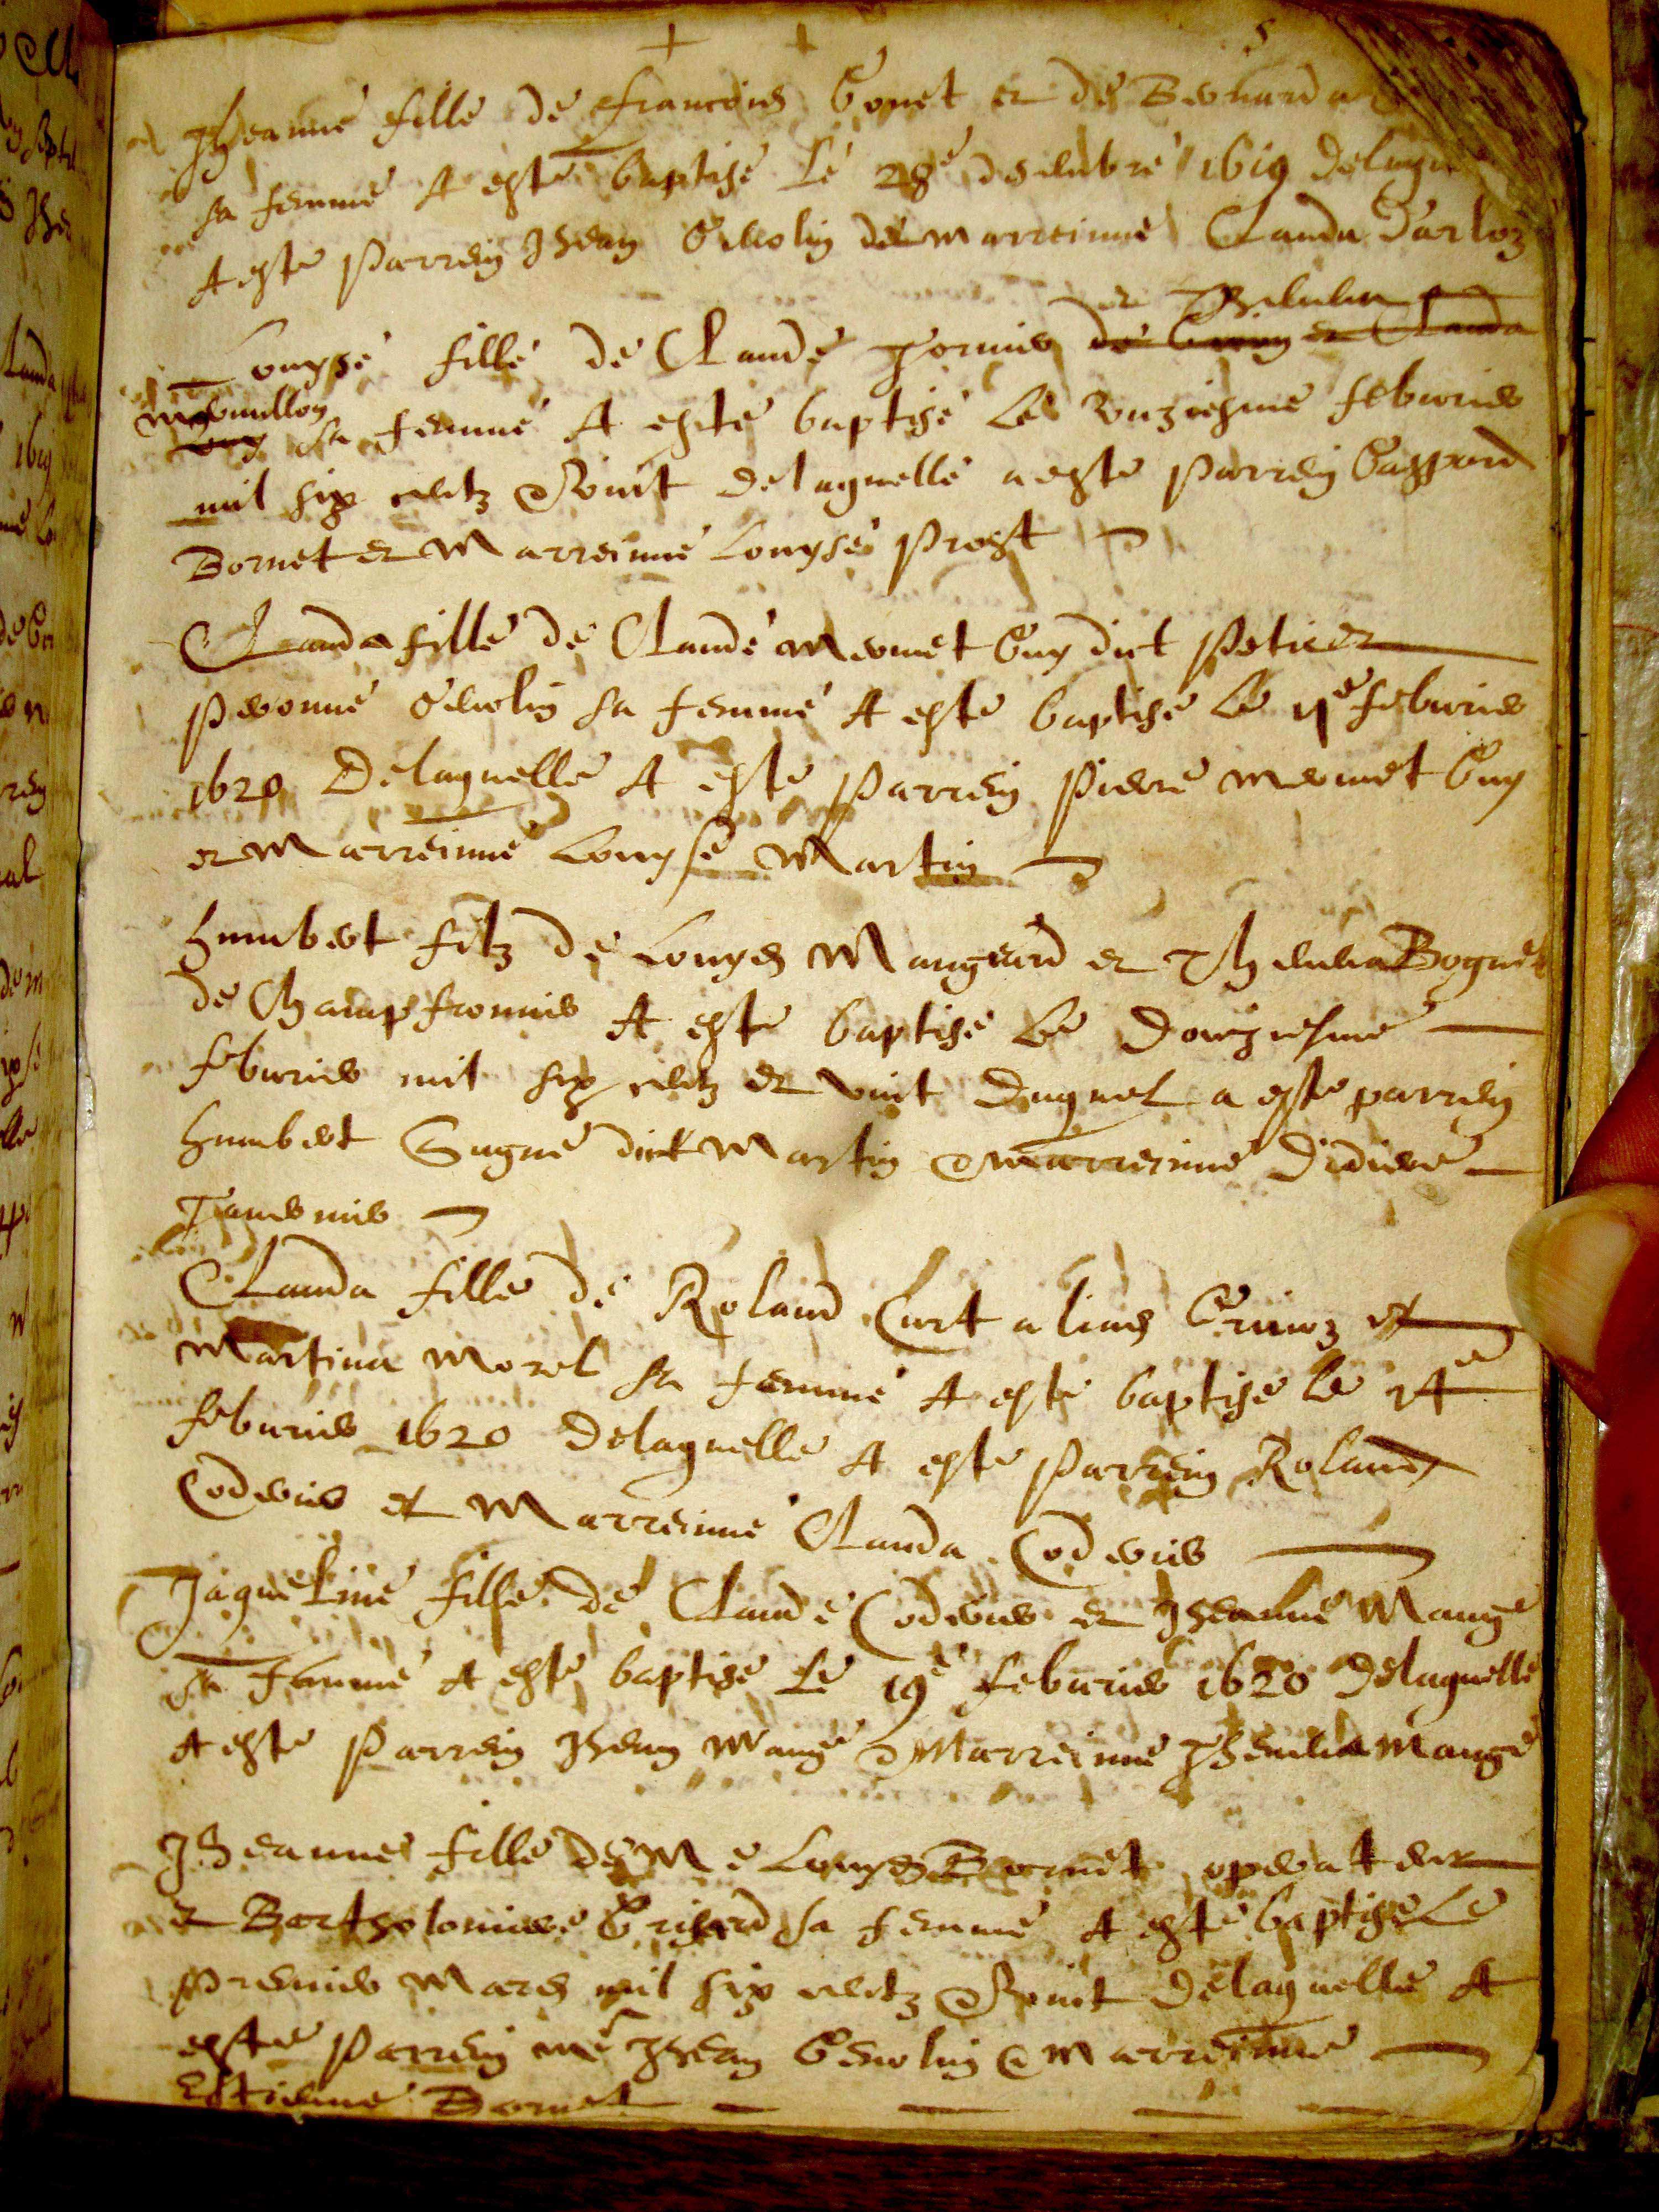 Jheanne fille de françois Gonet et de Bernarda
sa femme A esté baptisé Le 28e decembre 1619 delaquelle
A esté Parrein Jhean Genolin et marreinne Clauda Darloz
et Thevena
Louyse fille de Claude Tornier de Grring et Clauda
mermillon
Guy sa femme A esté baptisé Le unziesme febvrier
mil six centz & vint delaquelle a esté Parrein Gaspard
Bornet et Marreinne Louyse Prost
Clauda fille de Claude mermet Guy dict Potier
Pernonne Genolin sa femme A esté baptisé Le 11e febvrier
1620 Delaquelle A esté Parrein Pierre mermet Guy
et Marreinne Louyse Martin
humbert filz de Louys Maugard et Thevena Bognet
de Champfromier A esté baptisé Le Douziesme
febvrier mil six centz et vint Duquel a esté parrein
humbert dict Martin & marreinne Didiere
Tavernier
Clauda fille de Roland Curt alias Grinoz et
Martina Morel sa femme A esté baptisé Le 14e
febvrier 1620 Delaquelle A esté Parrein Roland
Codurier et Marreinne Clauda Codurier
Jaqueline fille de Claude Codurier et Jheanne Mange
sa femme A esté baptisé Le 19e febvrier 1620 Delaquelle
A esté Parrein Jhean Mange & Marreinne Thevena Mange
Jheanne fille de Me Louys Bornet operateur
et Bartholomiere sa femme A esté baptisé Le
Premier Mars mil six centz & vint Delaquelle A
esté Parrein me Jhean Genolin & Marreinne
Estienne Bornet